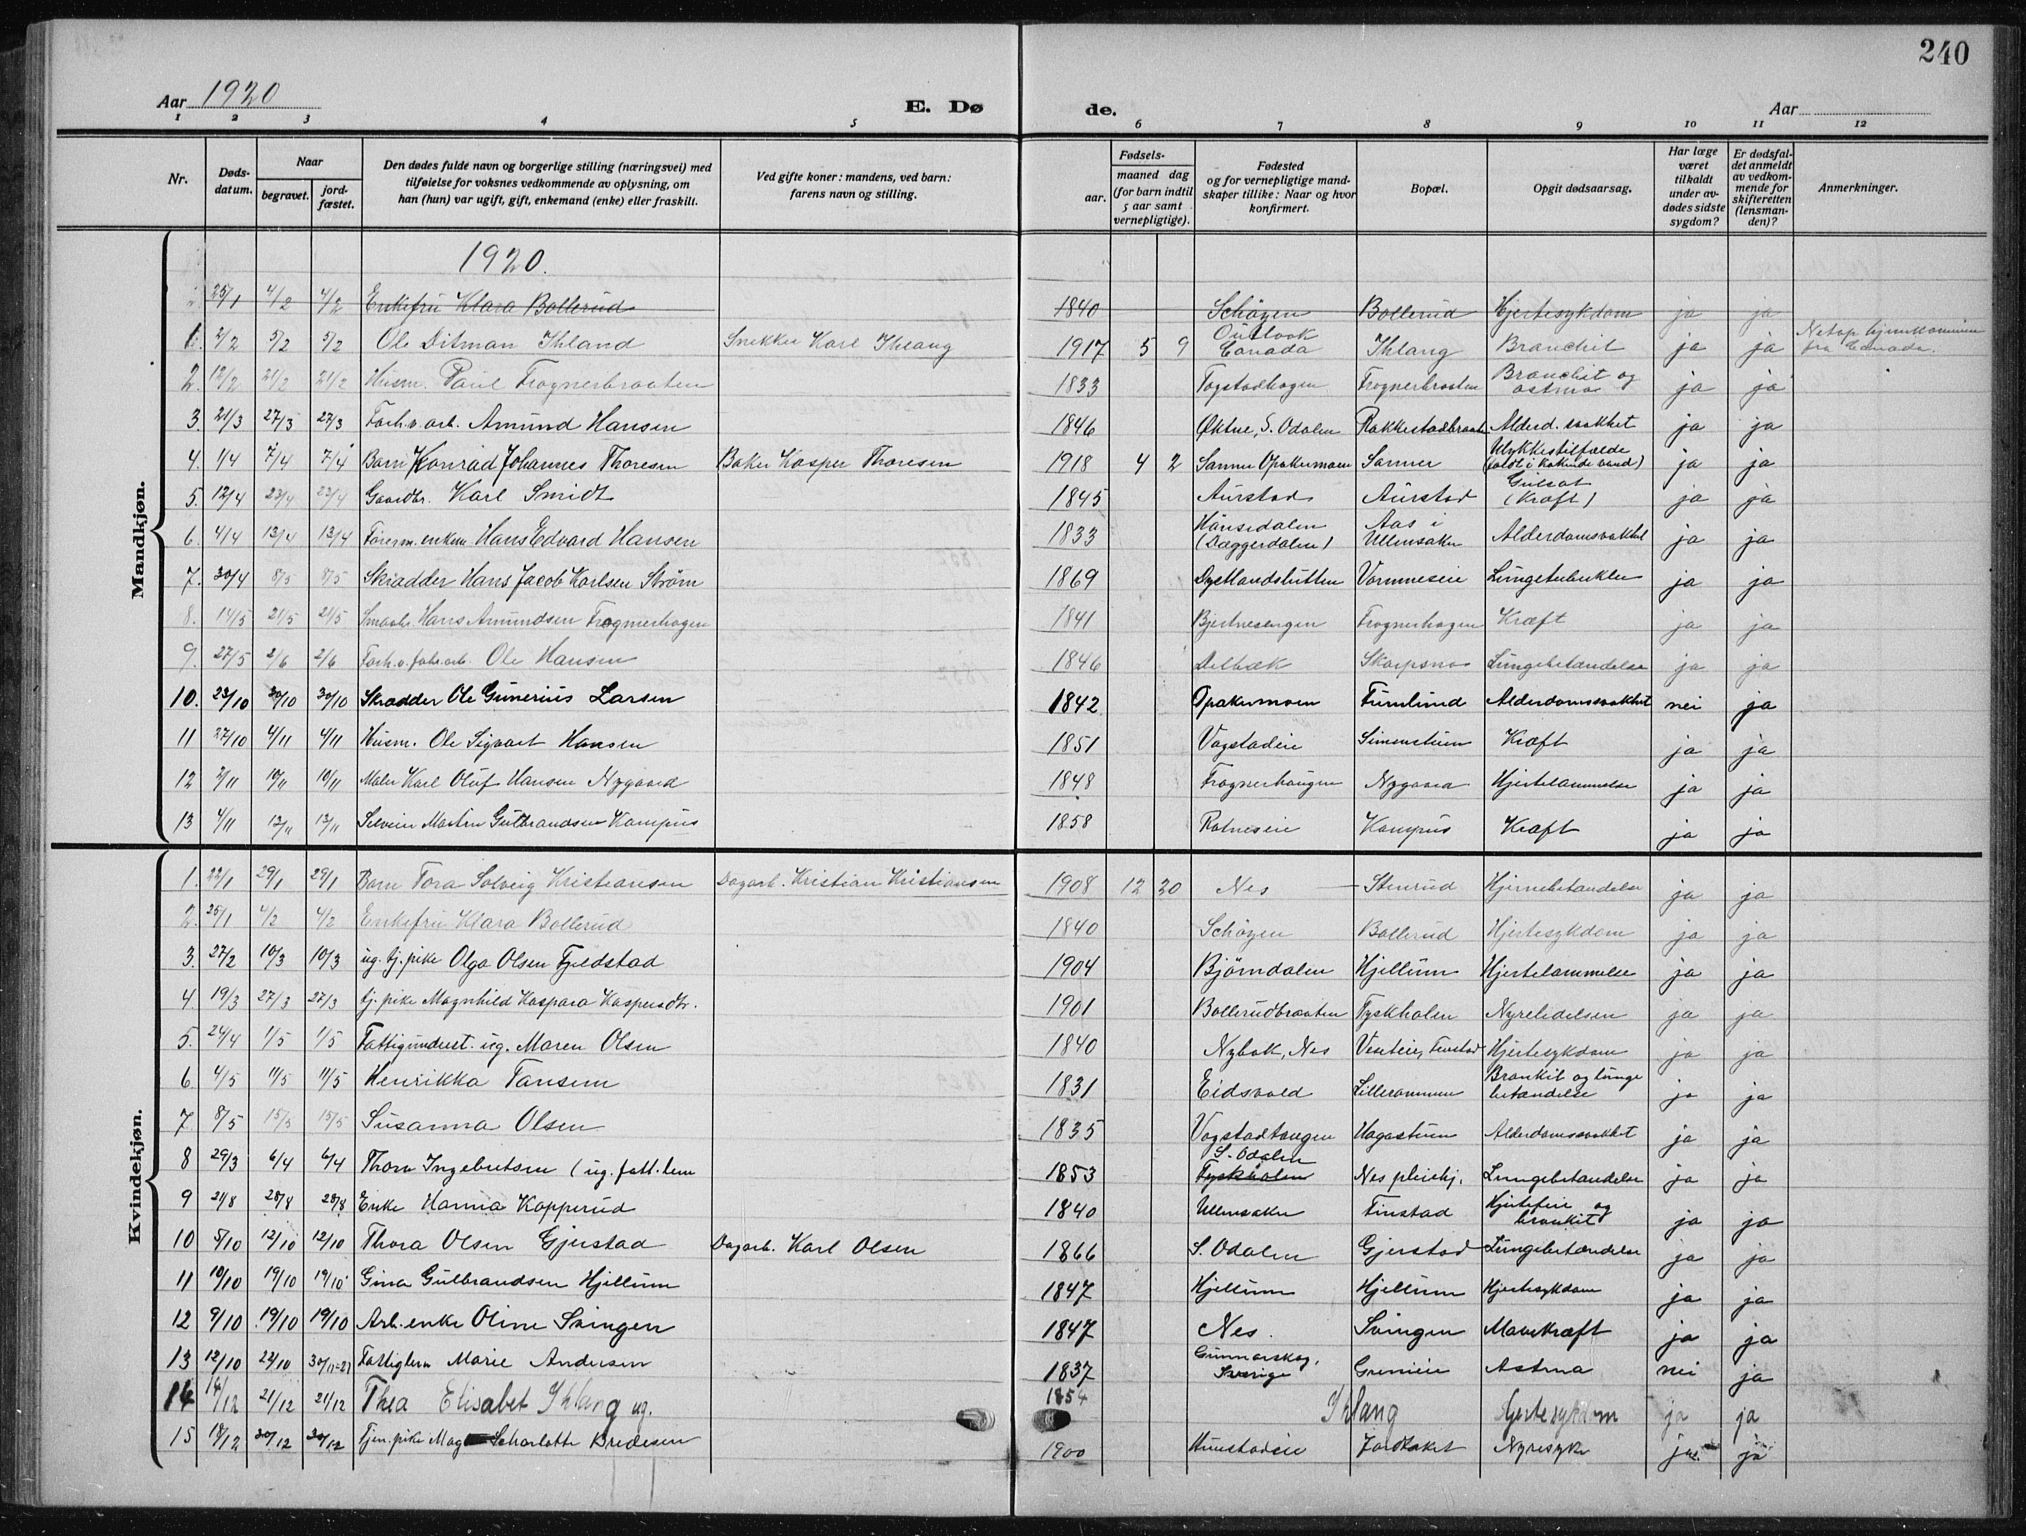 240
Aar 1920 E. Dø de. Aar
1 2 3 4 5 6 7 8 9 10 11 12
Nr. Døds-datum. Naar begravet. jord-fæstet. Den dødes fulde navn og borgerlige stilling (næringsvei) med tilføielse for voksnes vedkommende av oplysning, om han (hun) var ugift, gift, enkemand (enke) eller fraskilt. Ved gifte koner: mandens, ved barn: farens navn og stilling. Fødsels- aar. maaned dag (for barn indtil 5 aar samt vernepligtige). Fødested og for vernepligtige mandskaper tillike: Naar og hvor konfirmert. Bopæl. Opgit dødsaarsag. Har læge været tilkaldt under avdødes sidste sygdom? Er dødsfaldet anmeldt av vedkommende for skifteretten (lensmanden)? Anmerkninger.
Mandkjøn.
1920.
25/1 4/2 4/2 Enkefru Klara Bollerud 1840 Schøyen Bollerud Hjertesykdom ja ja
1. 2/2 5/2 5/2 Ole Ditman Ihland Snekker Karl Ihlang 1917 5 9 Outlook Canada Ihlang Bronchit ja ja Netop hjemkommen fra Canada.
2. 12/2 21/2 21/2 Husm. Paul Frognerbraaten 1833 Togstadhagen Frognerbraaten Bronchit og astma ja ja
3. 21/3 27/3 27/3 Forh.v. arb. Amund Hansen 1846 Øktne, S. Odalen Rakkestadbraaten Alderd. svakhet ja ja
4. 1/4 7/4 7/4 Barn Konrad Johannes Thoresen Baker Kasper Thoresen 1918 4 2 Sanner Opakermoen Sanner Ulykkestilfælde (faldt i kokende vand) ja ja
5. 12/4 23/4 23/4 Gaardbr. Karl Smidt 1845 Aurstad Aurstad Gulsot (Kræft) ja ja
6. 4/4 13/4 13/4 enkem. Hans Edvard Hansen 1833 Hånsedalen (Dæggerdalen) Aas i Ullensaker Alderdomssvakhet ja ja
7. 30/4 8/5 8/5 Skrædder Hans Jacob Karlsen Strøm 1869 Dystlandshutten Vormneseie Lungetuberkler ja ja
8. 14/5 21/5 21/5 Smaabr. Hans Amundsen Frognerhagen 1841 Bjertnesengen Frognerhagen Kræft ja ja
9. 27/5 2/6 2/6 Forh.v. fabr.arb. Ole Hansen 1846 Delbæk Skarpsno Lungebetændelse ja ja
10. 23/10 30/10 30/10 Skrædder Ole Gunerius Larsen 1842 Opakermoen Furulund Alderdomssvakhet nei ja
11 27/10 4/11 4/11 Husm. Ole Sigvart Hansen 1851 Vogstadeie Simenstuen Kræft ja ja
12 2/11 10/11 10/11 Maler Karl Oluf Hansen Nygaard 1848 Frognerhaugen Nygaard Hjertelammelse ja ja
13 4/11 12/11 12/11 Martin Gulbrandsen Kampus 1858 Ratneseie Kampus Kræft ja ja
Kvindekjøn.
1. 22/1 29/1 29/1 Barn Tora Solveig Kristiansen Dagarb. Kristian Kristiansen 1908 12 20 Nes Stenrud Hjernebetændelse ja ja
2. 25/1 4/2 4/2 Enkefru Klara Bollerud 1840 Schøyen Bollerud Hjertesykdom ja ja
3. 27/2 10/3 10/3 ug. tj. pike Olga Olsen Fjeldstad 1904 Bjørndalen Hjellum Hjertelammelse ja ja
4. 19/3 27/3 27/3 tj. pike Magnhild Kaspara Kaspersdtr. 1901 Bollerudbraaten Tyskholen Nyrelidelsen ja ja
5. 24/4 1/5 1/5 Fattigunderst. ug. Maren Olsen 1840 Nybak, Nes Finstad Hjertesykdom ja ja
6. 4/5 11/5 11/5 Henrikka Tansem 1831 Eidsvold Lillerommen Bronkit og lunge betændelse ja ja
7 8/5 15/5 15/5 Susanna Olsen 1835 Vogstadtangen Hagastuen Alderdomssvakhet ja ja
8 29/3 6/4 6/4 Thora Ingebretsen (ug. fatt.lem 1853 S. Odalen Tyskholen Nes pleiehj. Lungebetændelse ja ja
9 21/8 28/8 28/8 Enke Hanna Kopperud 1840 Ullensaker Finstad Hjertefeil og bronkit ja ja
10 5/10 12/10 12/10 Thora Olsen Gjerstad Dagarb. Karl Olsen 1866 S. Odalen Gjerstad Lungebetændelse ja ja
11 10/10 19/10 19/10 Gina Gulbrandsen Hjellum 1847 Hjellum Hjellum Hjertesykdom ja ja
12 9/10 19/10 19/10 Arb. enke Oline Svingen 1847 Nes. Svingen Mavekræft ja ja
13 12/10 22/10 30/11-21 Fattiglem Marie Andersen 1837 Gunnarskog, Sverige Grenieie Astma nei ja
14 14/12 21/12 21/12 Thea Elisabet Ihlang ug. 1854 Ihlang Hjertesykdom ja ja
15 18/12 30/12 30/12 Tjen. pike Mag Scharlotte Bredesen 1900 Hunstadeie Jordbaket Nyresyke ja ja